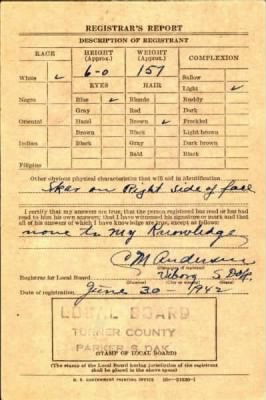 REGISTRAR'S REPORT
DESCRIPTION OF REGISTRANT
RACE HEIGHT (Approx.) WEIGHT (Approx.) COMPLEXION
White ✓ 6-0 157 Sallow
EYES HAIR Light ✓
Negro Blue ✓ Blonde Ruddy
Gray Red Dark
Oriental Hazel Brown ✓ Freckled
Brown Black Light brown
Indian Black Gray Dark brown
Bald Black
Filipino
Other obvious physical characteristics that will aid in identification
Skar on Right side of face
I certify that my answers are true; that the person registered has read or has had
read to him his own answers; that I have witnessed his signature or mark and that
all of his answers of which I have knowledge are true, except as follows:
none to My Knowledge
C M Anderson
(Signature of registrar)
Registrar for Local Board Viborg S Dak.
Date of registration June 30 - 1942
LOCAL BOARD
TURNER COUNTY
PARKER S. DAK.
(STAMP OF LOCAL BOARD)
(The stamp of the Local Board having jurisdiction of the registrant
shall be placed in the above space)
U. S. GOVERNMENT PRINTING OFFICE